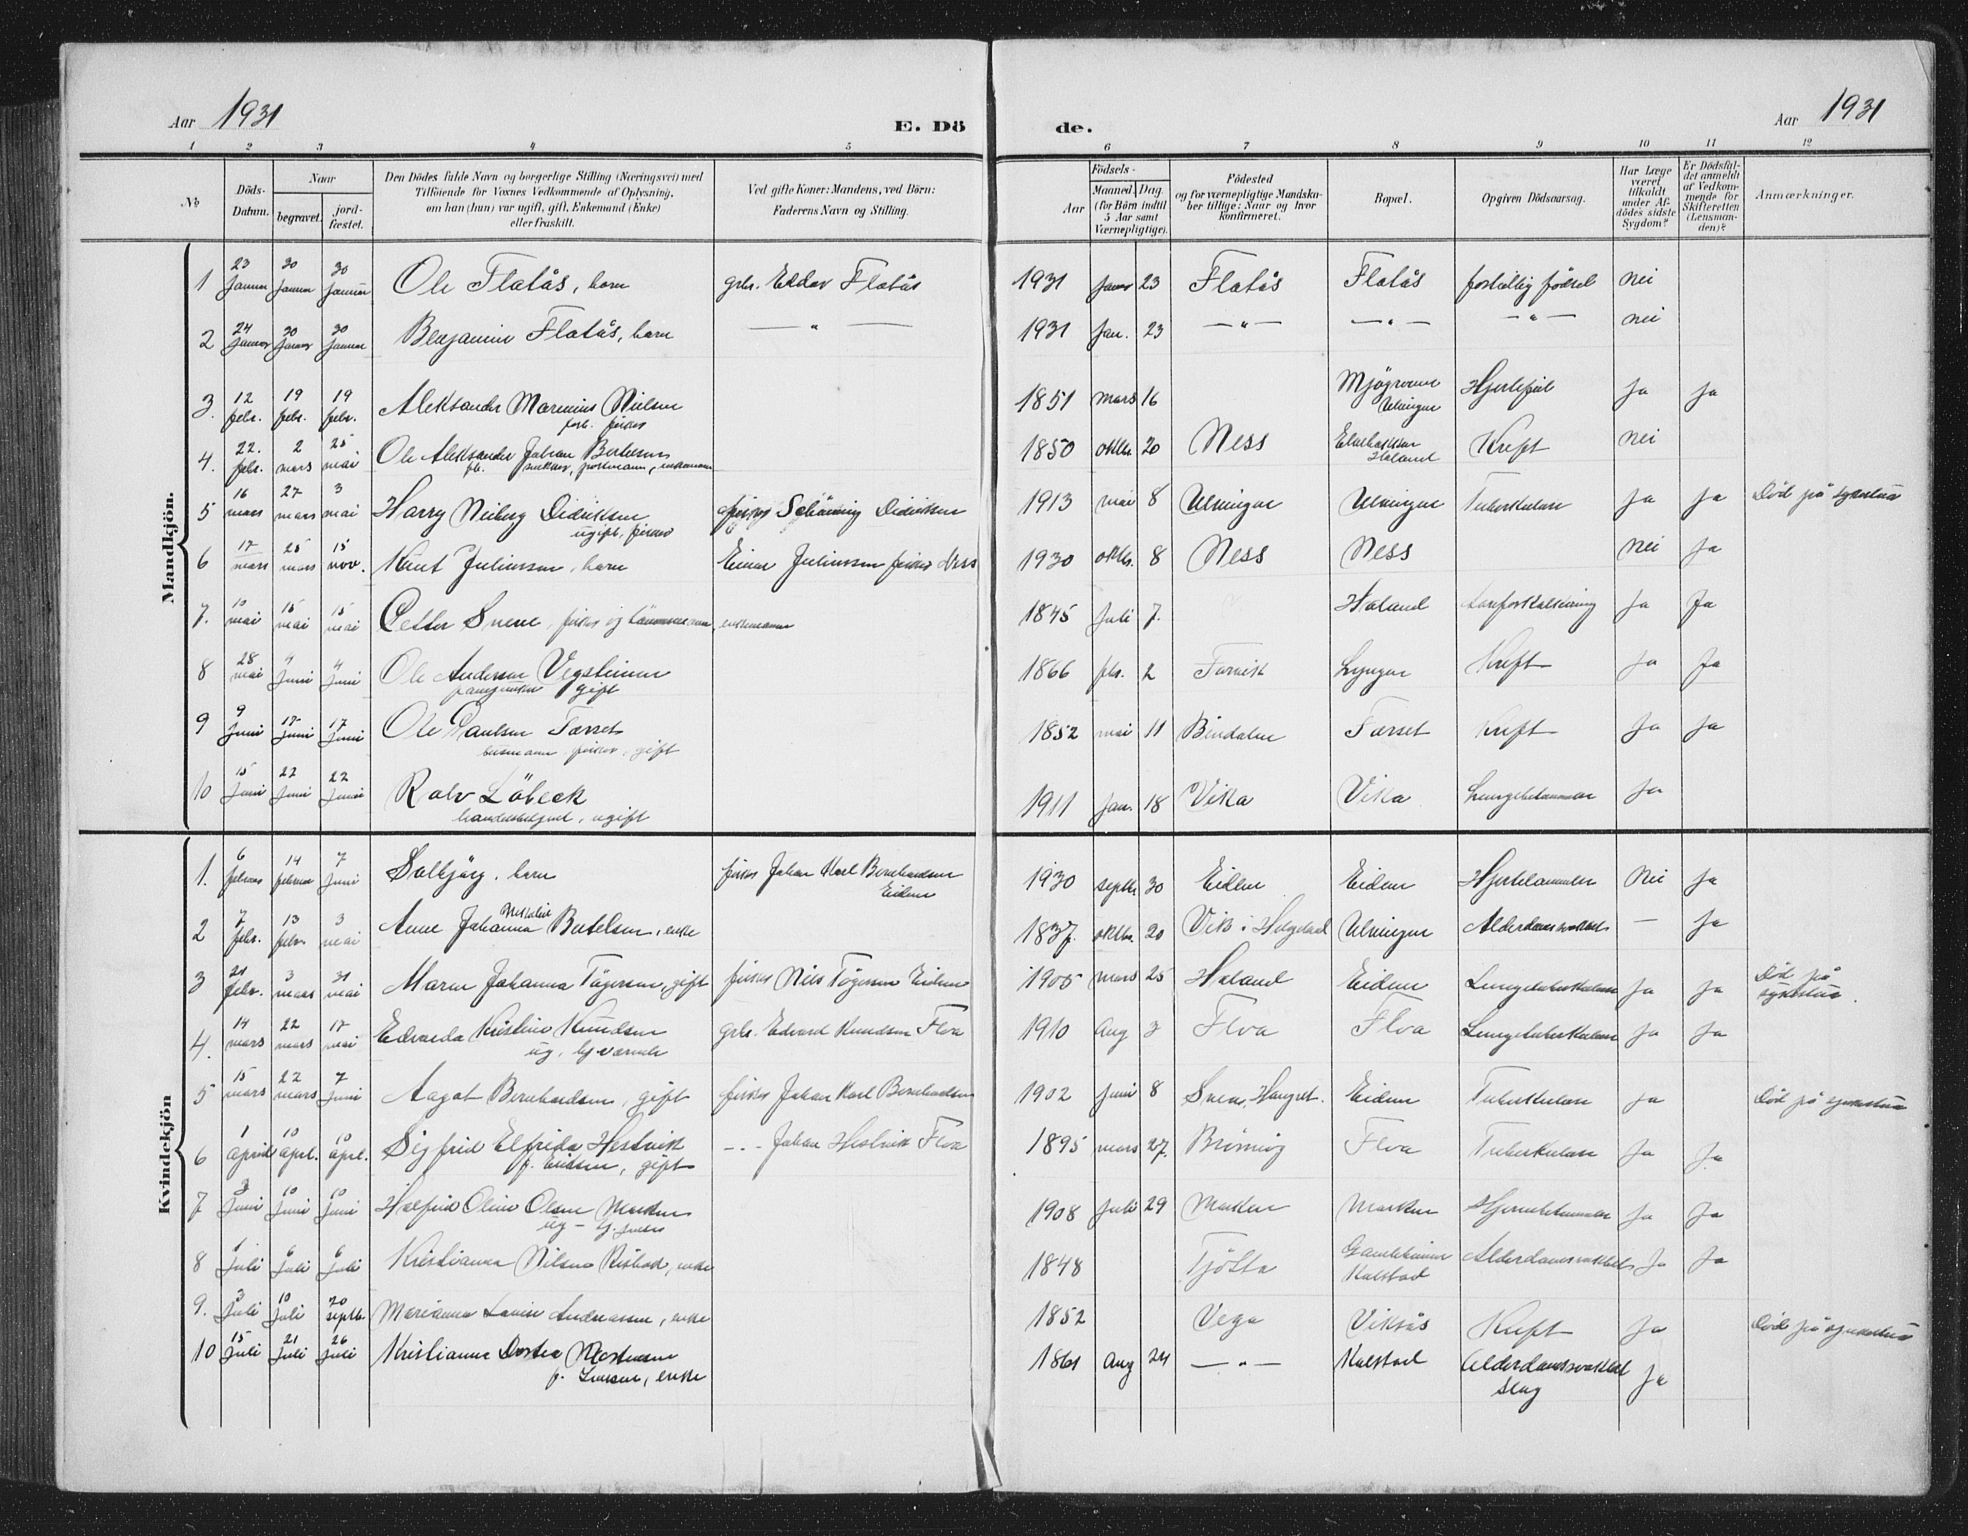 Aar 1931
E. Dö
de.
Aar 1931
1 2 3 4 5 6 7 8 9 10 11 12
No
Döds-Datum.
Naar
begravet.
jord-fæstet.
Den Dödes fulde Navn og borgerlige Stilling (Næringsvei) med
Tilföiende for Voxnes Vedkommende af Oplysning,
om han (hun) var ugift, gift, Enkemand (Enke)
eller fraskilt.
Ved gifte Koner: Mandens, ved Börn:
Faderens Navn og Stilling.
Födsels-
Aar
Maaned. Dag.
(for Börn indtil
5 Aar samt
Værnepligtige).
Födested
og for værnepligtige Mandska-
ber tillige: Naar og hvor
konfirmeret.
Bopæl.
Opgiven Dödsaarsag.
Har Læge
været
tilkaldt
under Af-
dödes sidste
Sygdom?
Er Dödsfal-
det anmeldt
af Vedkom-
mende for
Skifteretten
(Lensman-
den)?
Anmærkninger.
Mandkjön.
1 23 Januar 30 Januar 30 Januar Ole Flatås, barn gbr. Flatås 1931 Januar 23 Flatås Flatås fortidlig födsel nei
2 24 Januar 30 Januar 30 Januar Benjamin Flatås, barn — " — 1931 Jan. 23 — " — — " — — " — nei
3. 12 febr. 19 febr. 19 febr. Aleksander Marinius Nielsen 1851 mars 16 Hjertefeil Ja Ja
forh. fisker Ulvingen
4. 22. febr. 2 mars 25 mai Ole Aleksander Johan Bertelsen 1850 oktbr. 20 Ness Kreft nei
postmann, enkemann Haland
5 16 mars 27 mars 3 mai Harry Didriksen fisker Schönning Didriksen 1913 mai 8 Ulvingen Ulvingen Tuberkulose Ja Ja Död på sykestua
ugift, fisker
6 17 mars 25 mars 15 nov. Knut Juliussen, barn Einar Juliussen fisker Ness 1930 oktbr. 8 Ness Ness nei Ja
7. 10 mai 15 mai 15 mai Petter Snene, fisker og tömmermann, enkemann 1845 Juli 7. Haland Aareforkalkning Ja Ja
8 28 mai 4 Juni 4 Juni Ole Andersen Vegsteinen 1866 febr. 2 Lyngen Kreft Ja Ja
gift
9 9 Juni 17 Juni 17 Juni Ole Paulsen Forset 1852 mai 11 Bindalen Forset Kreft Ja Ja
fisker, gift
10 15 Juni 22 Juni 22 Juni Rolv Löbeck 1911 Jan. 18 Vika Vika Ja
handelsbetjent, ugift
Kvindekjön
1. 6 februar 14 februar 7 Juni Solbjörg, barn fisker Johan Karl Bernhardsen 1930 septbr. 30 Eidem Eidem Nei Ja
Eidem
2 7 febr. 13 febr. 3 mai Anne Johanna Bertelsen, enke 1837. oktbr. 20 Vik i Ulvingen Alderdomssvakhet — Ja
3 21 febr. 3 mars 31 mai Maren Johanna Tögersen, gift fisker Nils Tögersen Eidem 1905 mars 25 Haland Eidem Lungetuberkulose Ja Ja Död på
sykestua.
4. 14 mars 22 mars 17 mai Edvarda Kristine Knudsen gbr. Edvard Knudsen Flva 1910 Aug 3 Flva Flva Lungetuberkulose Ja Ja
ug.
5 15 mars 22 mars 7 Juni Aagot Bernhardsen, gift fisker Johan Karl Bernhardsen 1902 Juni 8 Eidem Tuberkulose Ja Död på sykestua
6 1 april 10 april. 10 april. Sigfrid Elfrida Hestvik - " - Johan Hestvik Flva 1895 mars 27. Brönnöy Flva Tuberkulose Ja Ja
gift
7 3 Juni 10 Juni 10 Juni Olsen Marken 1908 Juli 29 Marken Marken Ja Ja
ug
8 1 Juli 6 Juli 6 Juli Kristianna Nilsen, enke 1848 Tjötta Alderdomssvakhet Ja Ja
Kalstad
9. 3 Juli 10 Juli 20 septb. Marianna Andreassen, enke 1852 Vega Vikås Kreft Ja Död på sykestua
10 15 Juli 21 Juli 26 Juli Kristianne Dortea Mortensen 1861 Aug 24 — " — Kalstad Alderdomssvakhet Ja
enke slag